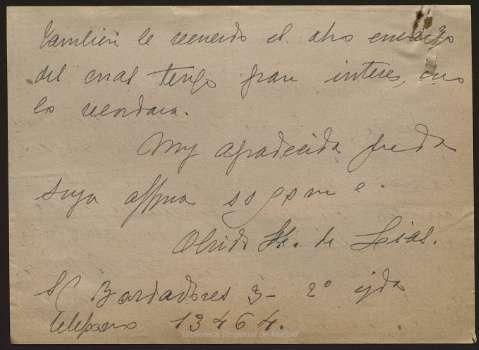 también le recuerdo el otro encargo
del cual tengo gran interes, como
lo recordara.
Muy agradecida queda
suya affma s s q e s m e.
Olvido de Lias.
S/C Bordadores 3 - 2º izda
teléfono 13464.